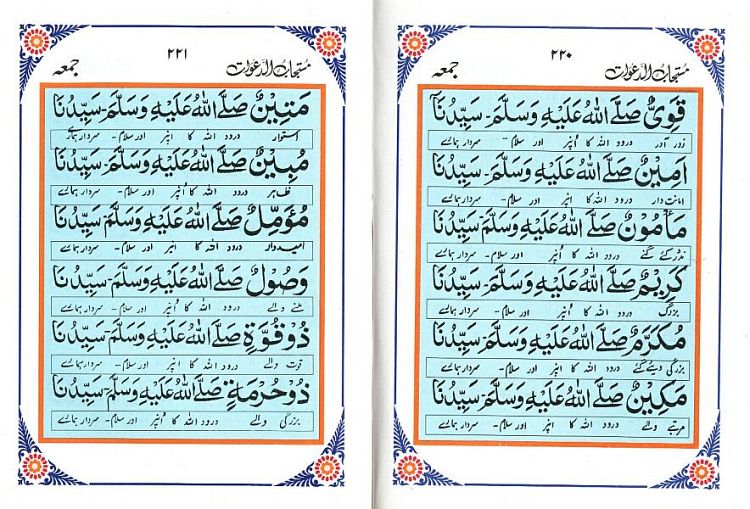 ۲۲۰
مستجاب الدعوات جمعہ
قَوِيٌّ صَلَّى اللهُ عَلَيْهِ وَسَلَّمَ۔ سَيِّدُنَآ
زور آور درود اللہ کا اُنپر اور سلام۔ سردار ہمارے
اَمِيْنٌ صَلَّى اللهُ عَلَيْهِ وَسَلَّمَ۔ سَيِّدُنَا
امانت دار درود اللہ کا اُنپر اور سلام۔ سردار ہمارے
مَاْمُوْنٌ صَلَّى اللهُ عَلَيْهِ وَسَلَّمَ۔ سَيِّدُنَا
نڈر کئے گئے درود اللہ کا اُنپر اور سلام۔ سردار ہمارے
كَرِيْمٌ صَلَّى اللهُ عَلَيْهِ وَسَلَّمَ۔ سَيِّدُنَا
بزرگ درود اللہ کا اُنپر اور سلام۔ سردار ہمارے
مُكَرَّمٌ صَلَّى اللهُ عَلَيْهِ وَسَلَّمَ۔ سَيِّدُنَا
بزرگی دیئے گئے درود اللہ کا اُنپر اور سلام۔ سردار ہمارے
مَكِيْنٌ صَلَّى اللهُ عَلَيْهِ وَسَلَّمَ۔ سَيِّدُنَا
مرتبے والے درود اللہ کا اُنپر اور سلام۔ سردار ہمارے
۲۲۱
مستجاب الدعوات جمعہ
مَتِيْنٌ صَلَّى اللهُ عَلَيْهِ وَسَلَّمَ۔ سَيِّدُنَا
استوار درود اللہ کا اُنپر اور سلام۔ سردار ہمارے
مُبِيْنٌ صَلَّى اللهُ عَلَيْهِ وَسَلَّمَ۔ سَيِّدُنَا
ظاہر درود اللہ کا اُنپر اور سلام۔ سردار ہمارے
مُؤَمِّلٌ صَلَّى اللهُ عَلَيْهِ وَسَلَّمَ۔ سَيِّدُنَا
امیدوار درود اللہ کا اُنپر اور سلام۔ سردار ہمارے
وَصُوْلٌ صَلَّى اللهُ عَلَيْهِ وَسَلَّمَ۔ سَيِّدُنَا
ملنے والے درود اللہ کا اُنپر اور سلام۔ سردار ہمارے
ذُوْقُوَّةٍ صَلَّى اللهُ عَلَيْهِ وَسَلَّمَ۔ سَيِّدُنَا
قوت والے درود اللہ کا اُنپر اور سلام۔ سردار ہمارے
ذُوْحُرْمَةٍ صَلَّى اللهُ عَلَيْهِ وَسَلَّمَ۔ سَيِّدُنَا
بزرگی والے درود اللہ کا اُنپر اور سلام۔ سردار ہمارے